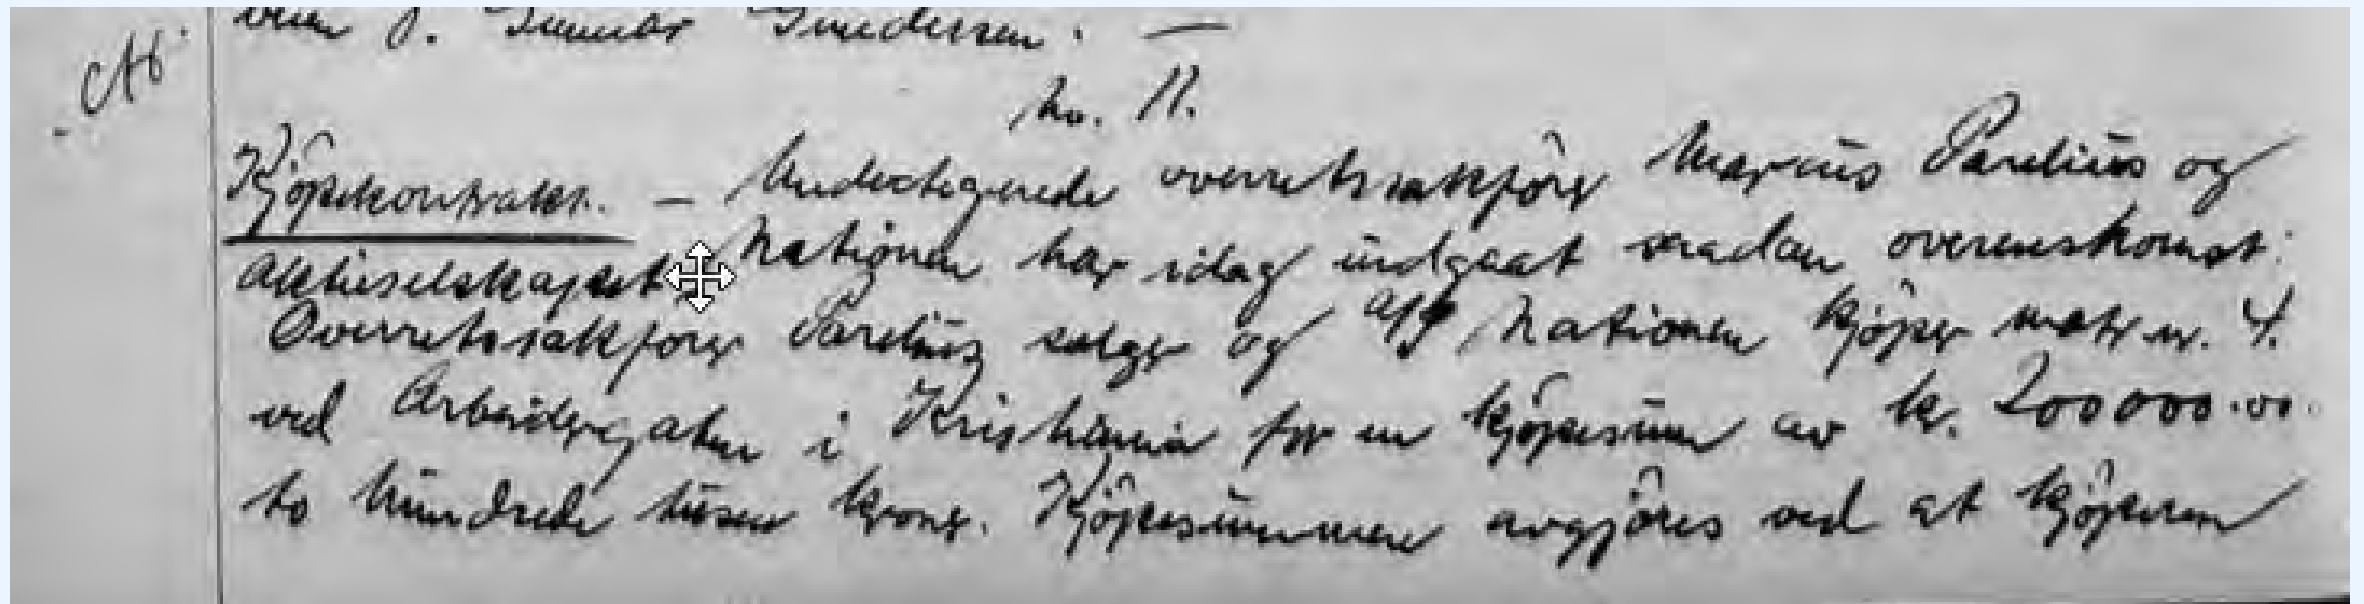 No. 11.
Kjöpekontrakt. — Undertegnede overretssakförer Marius Parelius og
Aktieselskapet Nationen har idag indgaat saadan overenskomst:
Overretssakförer Parelius sælger og A/S Nationen kjöper matr. nr. 4.
ved Arbeidergaten i Kristiania for en kjöpesum av kr. 200000.00.
to hundrede tusen kroner. Kjöpesummen avgjöres ved at kjöperen